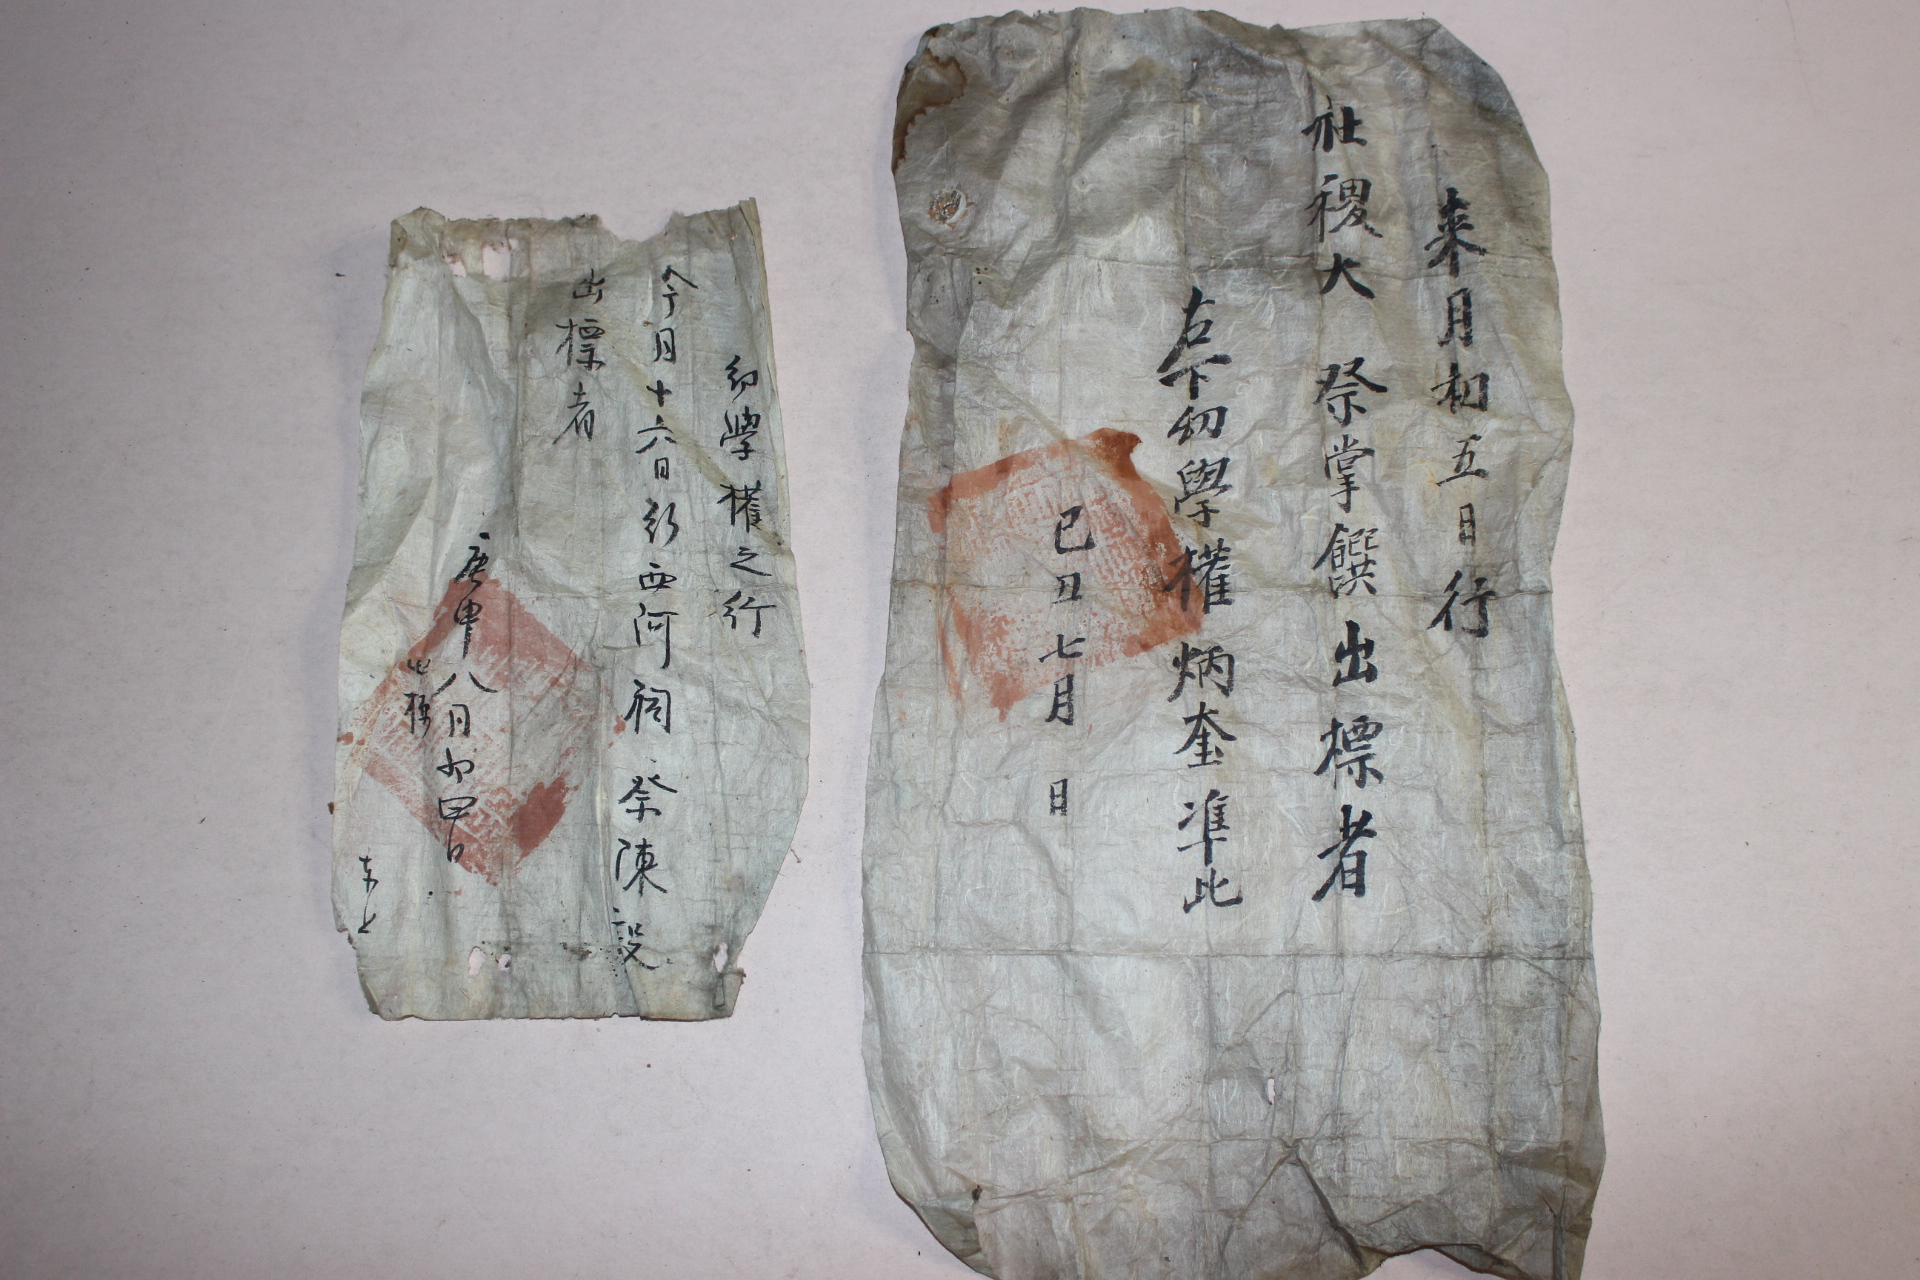 来月初五日行
社稷大 祭掌饌出標者
右下幼學權炳奎準此
己丑七月 日
幼學權之衍
今月十六日行西河祠祭陳設
出標者
庚申八月初四日
出標